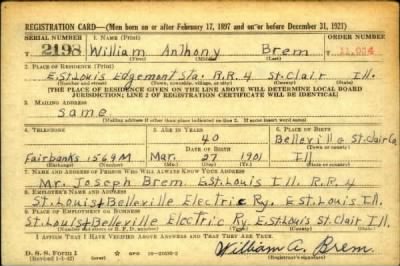 REGISTRATION CARD—(Men born on or after February 17, 1897 and on or before December 31, 1921)
SERIAL NUMBER 1. NAME (Print) ORDER NUMBER
T 2198 William Anthony Brem 11,034
(First) (Middle) (Last)
2. PLACE OF RESIDENCE (Print)
E. St. Louis Edgemont Sta. R.R. 4 St. Clair Ill.
(Number and street) (Town, township, village, or city) (County) (State)
[THE PLACE OF RESIDENCE GIVEN ON THE LINE ABOVE WILL DETERMINE LOCAL BOARD
JURISDICTION; LINE 2 OF REGISTRATION CERTIFICATE WILL BE IDENTICAL]
3. MAILING ADDRESS
Same
[Mailing address if other than place indicated on line 2. If same insert word same]
4. TELEPHONE 5. AGE IN YEARS 6. PLACE OF BIRTH
40 Belleville St. Clair Co.
DATE OF BIRTH (Town or county)
Fairbanks 1569M Mar. 27 1901 Ill
7. NAME AND ADDRESS OF PERSON WHO WILL ALWAYS KNOW YOUR ADDRESS
Mr. Joseph Brem E. St. Louis Ill. R.R. 4
8. EMPLOYER'S NAME AND ADDRESS
St. Louis & Belleville Electric Ry. E. St. Louis Ill.
9. PLACE OF EMPLOYMENT OR BUSINESS
St. Louis & Belleville Electric Ry E. St. Louis St. Clair Ill.
(Number and street or R. F. D. number) (Town) (County) (State)
I AFFIRM THAT I HAVE VERIFIED ABOVE ANSWERS AND THAT THEY ARE TRUE.
D. S. S. Form 1
(Revised 1-1-42) GPO
William A. Brem
(Registrant's signature)